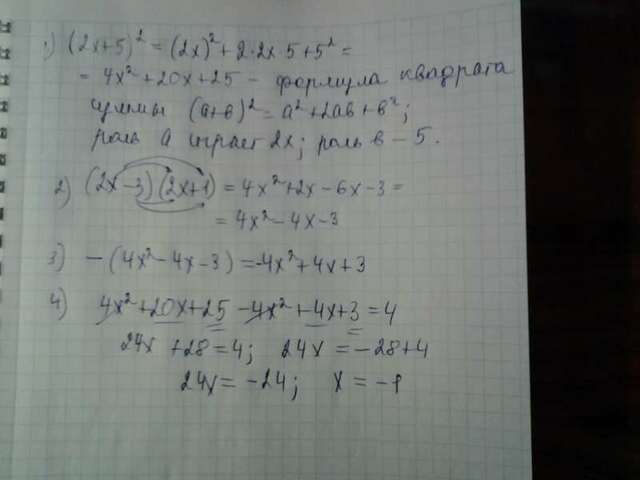 1) (2x+5)² = (2x)² + 2·2x·5 + 5² =
= 4x² + 20x + 25 - формула квадрата
суммы (a+в)² = a² + 2ab + в²;
роль a играет 2x; роль в - 5.
2) (2x-3)(2x+1) = 4x² + 2x - 6x - 3 =
= 4x² - 4x - 3
3) -(4x² - 4x - 3) = -4x² + 4x + 3
4) 4x² + 20x + 25 - 4x² + 4x + 3 = 4
24x + 28 = 4; 24x = -28 + 4
24x = -24; x = -1